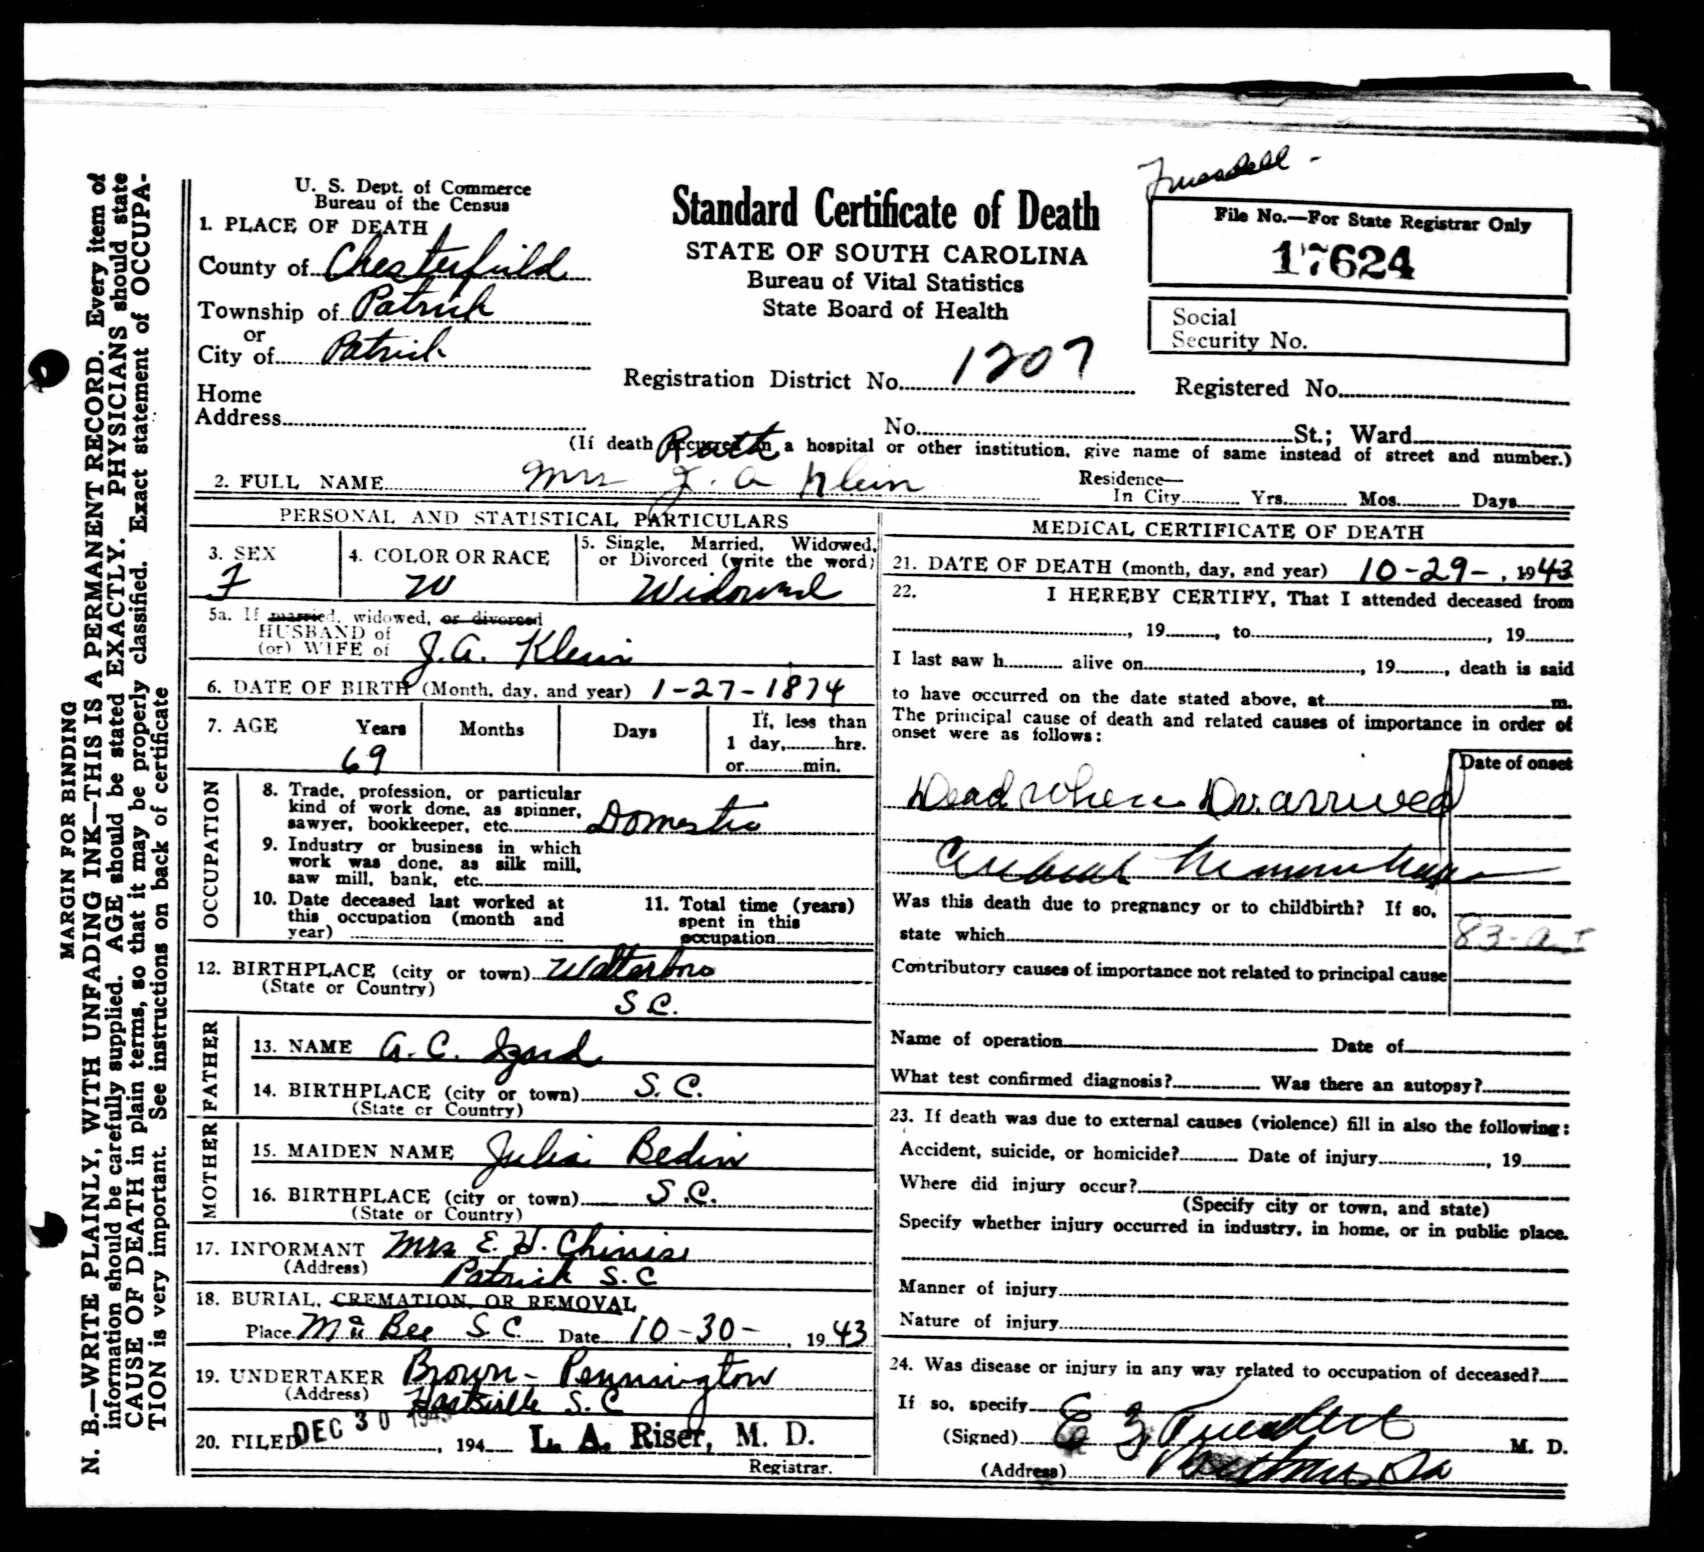 N. B.—WRITE PLAINLY, WITH UNFADING INK—THIS IS A PERMANENT RECORD. Every item of
information should be carefully supplied. AGE should be stated EXACTLY. PHYSICIANS should state
CAUSE OF DEATH in plain terms, so that it may be properly classified. Exact statement of OCCUPA-
TION is very important. See instructions on back of certificate
MARGIN FOR BINDING
U. S. Dept. of Commerce
Bureau of the Census
Standard Certificate of Death
STATE OF SOUTH CAROLINA
Bureau of Vital Statistics
State Board of Health
File No.—For State Registrar Only
17624
Social
Security No.
1. PLACE OF DEATH
County of Chesterfield
Township of Patrick
or
City of Patrick
Registration District No. 1207
Registered No.
Home
Address
No. St.; Ward
(If death occurred in a hospital or other institution, give name of same instead of street and number.)
Ruth
2. FULL NAME Mrs J. A Klein
Residence—
In City Yrs. Mos. Days
PERSONAL AND STATISTICAL PARTICULARS
3. SEX
F
4. COLOR OR RACE
W
5. Single, Married, Widowed,
or Divorced (write the word)
Widowed
5a. If married, widowed, or divorced
HUSBAND of
(or) WIFE of J.A. Klein
6. DATE OF BIRTH (Month, day, and year) 1-27-1874
7. AGE Years Months Days If less than
1 day, hrs.
or min.
69
OCCUPATION
8. Trade, profession, or particular
kind of work done, as spinner,
sawyer, bookkeeper, etc. Domestic
9. Industry or business in which
work was done, as silk mill,
saw mill, bank, etc.
10. Date deceased last worked at
this occupation (month and
year)
11. Total time (years)
spent in this
occupation
12. BIRTHPLACE (city or town) Walterboro
(State or Country) S.C.
FATHER
13. NAME A. C. Izard
14. BIRTHPLACE (city or town) S. C.
(State or Country)
MOTHER
15. MAIDEN NAME Julia Bedin
16. BIRTHPLACE (city or town) S.C.
(State or Country)
17. INFORMANT Mrs E. H.
(Address) Patrick S.C
18. BURIAL, CREMATION, OR REMOVAL
Place Mc Bee S.C. Date 10-30-, 1943
19. UNDERTAKER Brown-Pennington
(Address) Hartsville S.C
20. FILED DEC 30 1943, 194 L. A. Riser, M. D.
Registrar.
MEDICAL CERTIFICATE OF DEATH
21. DATE OF DEATH (month, day, and year) 10-29-, 1943
22. I HEREBY CERTIFY, That I attended deceased from
, 19 , to , 19
I last saw h alive on , 19 , death is said
to have occurred on the date stated above, at m.
The principal cause of death and related causes of importance in order of
onset were as follows:
Date of onset
Dead when Dr. arrived
Cerebral Hemorrhage
Was this death due to pregnancy or to childbirth? If so,
state which
83-a
Contributory causes of importance not related to principal cause
Name of operation Date of
What test confirmed diagnosis? Was there an autopsy?
23. If death was due to external causes (violence) fill in also the following:
Accident, suicide, or homicide? Date of injury , 19
Where did injury occur?
(Specify city or town, and state)
Specify whether injury occurred in industry, in home, or in public place.
Manner of injury
Nature of injury
24. Was disease or injury in any way related to occupation of deceased?
If so, specify
(Signed) M. D.
(Address)